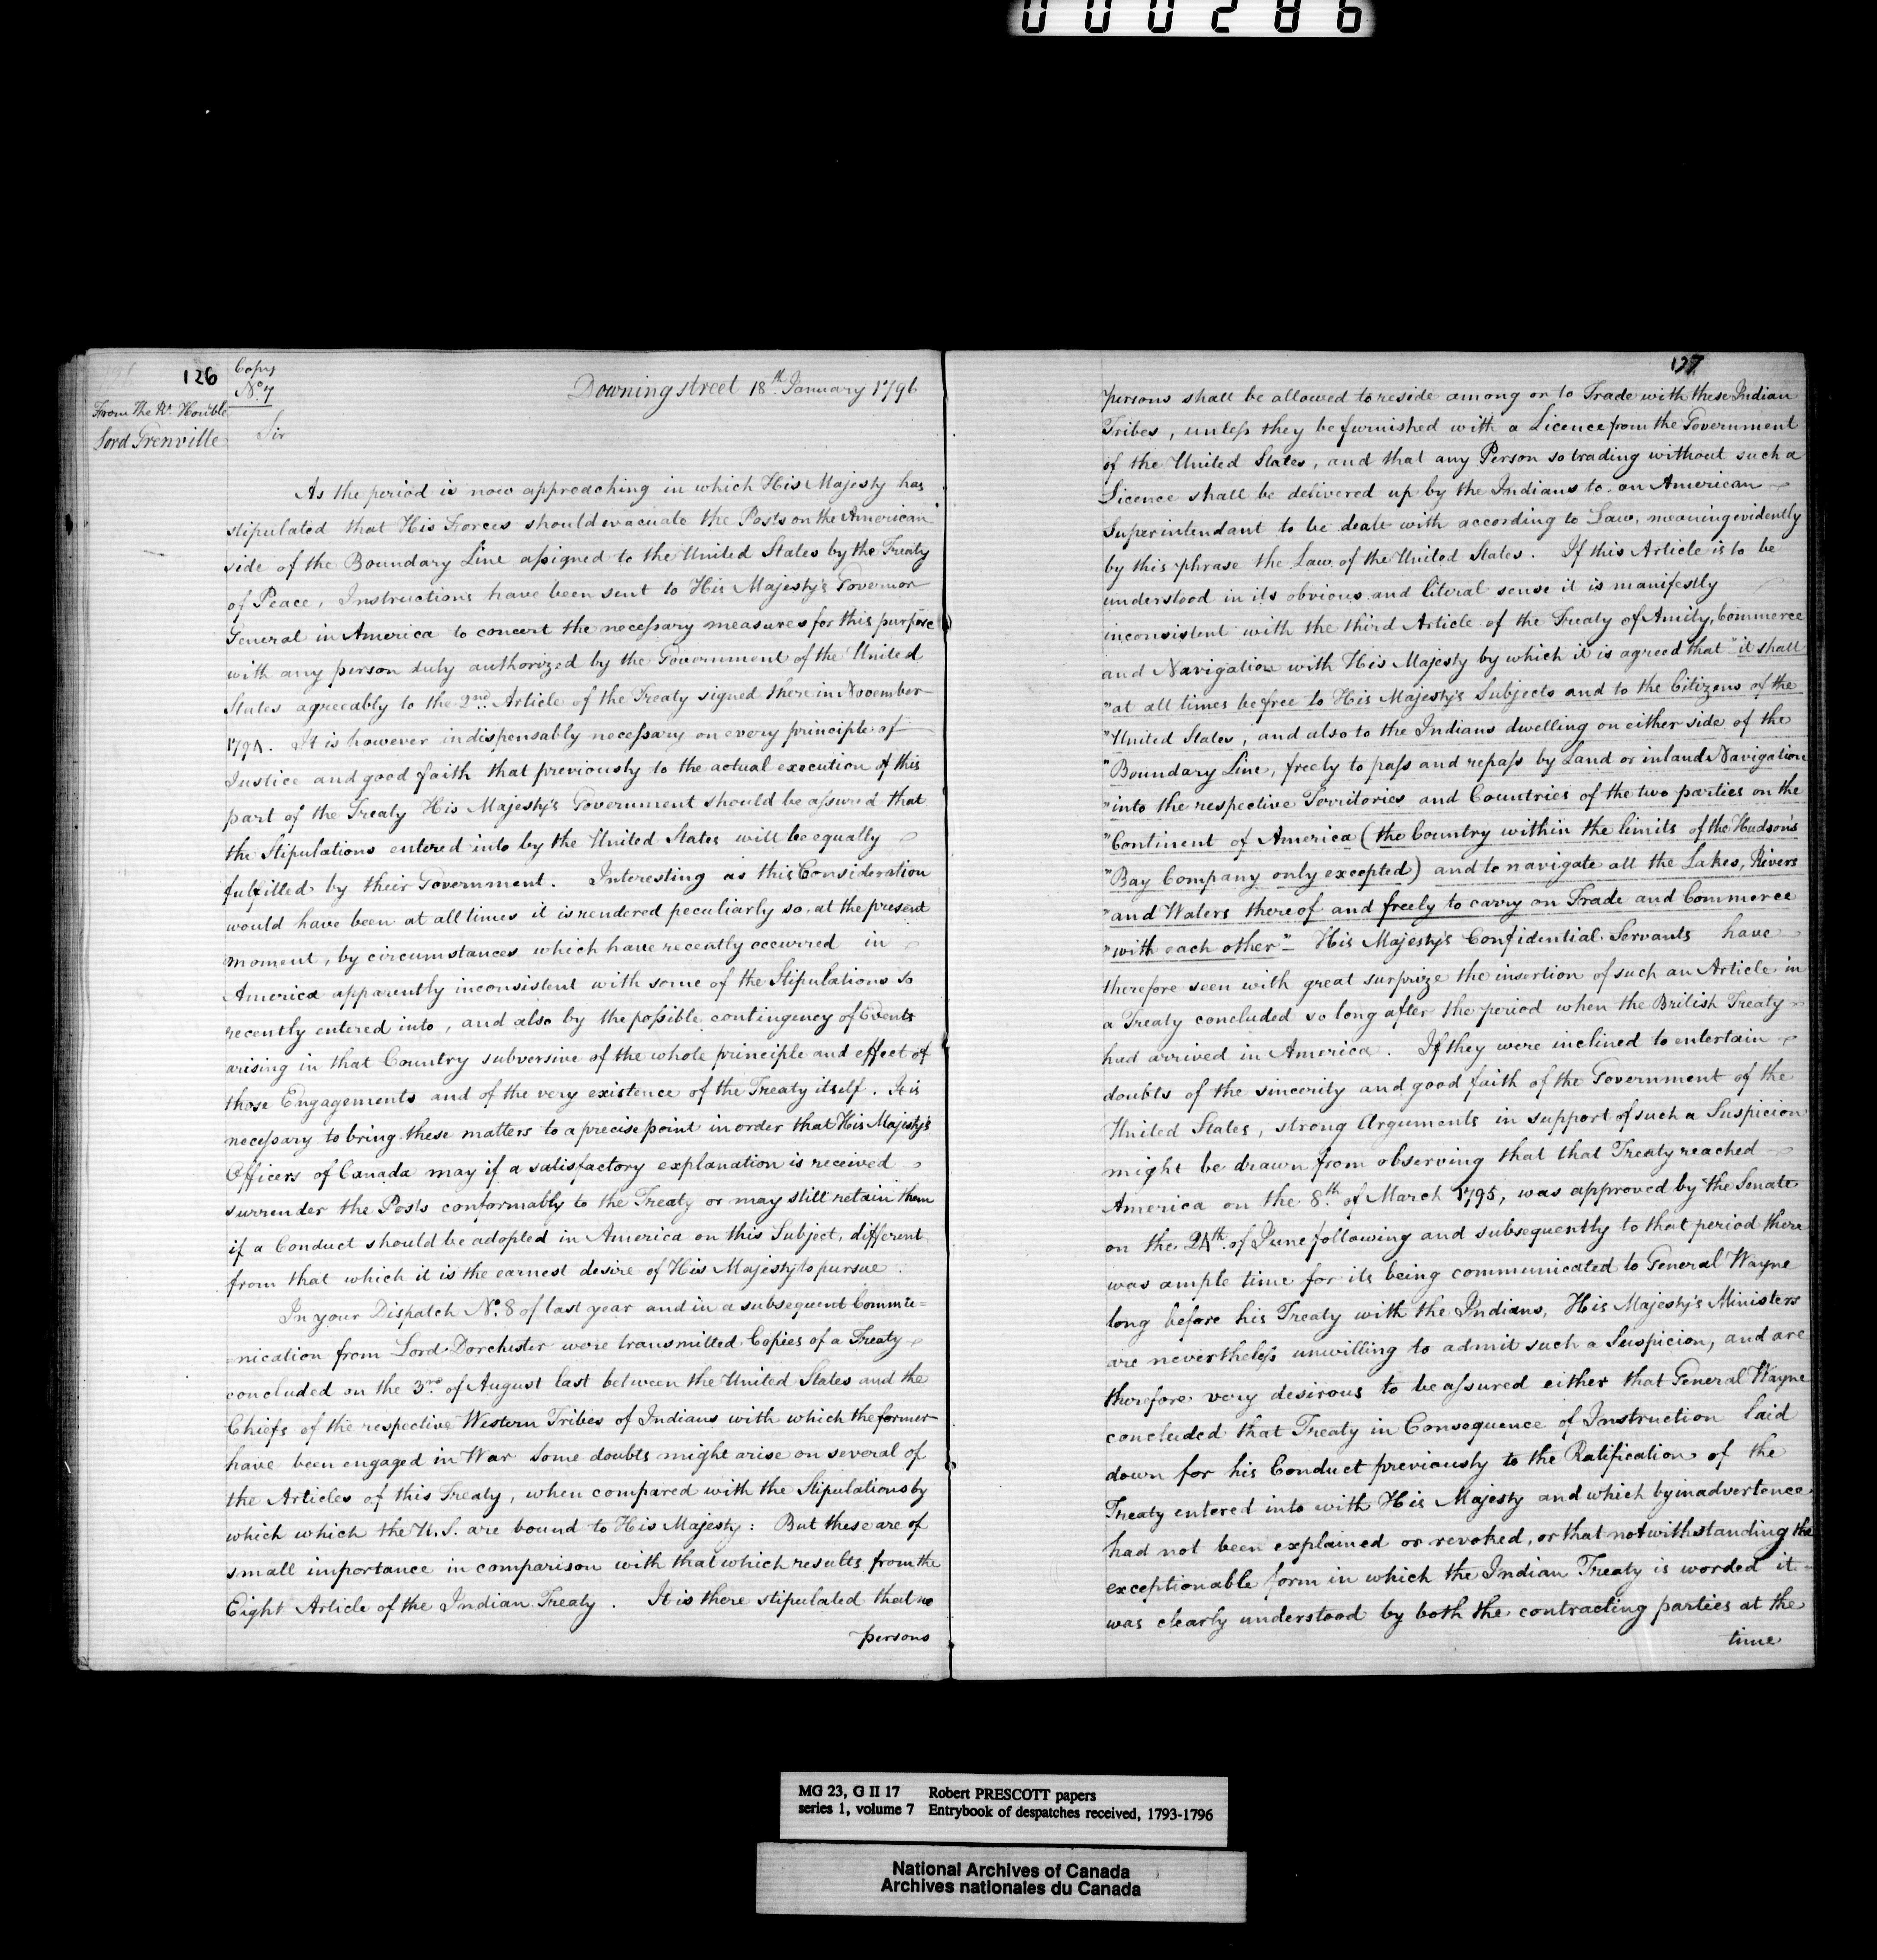 000286
126
Copy
No. 7
From the Rt. Honble
Lord Grenville
Downing street 18th January 1796
Sir
As the period is now approaching in which His Majesty has
stipulated that His Forces should evacuate the Posts on the American
side of the Boundary Line assigned to the United States by the Treaty
of Peace, Instructions have been sent to His Majesty's Governor
General in America to concert the necessary measures for this purpose
with any person duly authorized by the Government of the United
States agreeably to the 2nd. Article of the Treaty signed there in November
1794. It is however indispensably necessary on every principle of
Justice and good faith that previously to the actual execution of this
part of the Treaty His Majesty's Government should be assured that
the Stipulations entered into by the United States will be equally
fulfilled by their Government. Interesting as this Consideration
would have been at all times it is rendered peculiarly so, at the present
moment, by circumstances which have recently occurred in
America apparently inconsistent with some of the Stipulations so
recently entered into, and also by the possible contingency of Events
arising in that Country subversive of the whole principle and effect of
those Engagements and of the very existence of the Treaty itself. It is
necessary to bring these matters to a precise point in order that His Majesty's
Officers of Canada may if a satisfactory explanation is received
surrender the Posts conformably to the Treaty or may still retain them
if a Conduct should be adopted in America on this Subject, different
from that which it is the earnest desire of His Majesty to pursue.
In your Dispatch No. 8 of last year and in a subsequent Commu=
-nication from Lord Dorchester were transmitted Copies of a Treaty
concluded on the 3rd of August last between the United States and the
Chiefs of the respective Western Tribes of Indians with which the former
have been engaged in War some doubts might arise on several of
the Articles of this Treaty, when compared with the Stipulations by
which which the U. S. are bound to His Majesty: But these are of
small importance in comparison with that which results from the
Eight Article of the Indian Treaty. It is there stipulated that no
persons
127
persons shall be allowed to reside among or to Trade with these Indian
Tribes, unless they be furnished with a Licence from the Government
of the United States, and that any Person so trading without such a
Licence shall be delivered up by the Indians to an American
Superintendant to be dealt with according to Law, meaning evidently
by this phrase the Law of the United States. If this Article is to be
understood in its obvious and literal sense it is manifestly
inconsistent with the third Article of the Treaty of Amity, Commerce
and Navigation with His Majesty by which it is agreed that "it shall
"at all times be free to His Majesty's Subjects and to the Citizens of the
"United States, and also to the Indians dwelling on either side of the
"Boundary Line, freely to pass and repass by Land or inland Navigation
"into the respective Territories and Countries of the two parties on the
"Continent of America (the Country within the limits of the Hudson's
"Bay Company only excepted) and to navigate all the Lakes, Rivers
"and Waters thereof and freely to carry on Trade and Commerce
"with each other" His Majesty's Confidential Servants have
therefore seen with great surprize the insertion of such an Article in
a Treaty concluded so long after the period when the British Treaty
had arrived in America. If they were inclined to entertain
doubts of the sincerity and good faith of the Government of the
United States, strong Arguments in support of such a Suspicion
might be drawn from observing that that Treaty reached
America on the 8th. of March 1795, was approved by the Senate
on the 24th. of June following and subsequently to that period there
was ample time for its being communicated to General Wayne
long before his Treaty with the Indians, His Majesty's Ministers
are nevertheless unwilling to admit such a Suspicion, and are
therefore very desirous to be assured either that General Wayne
concluded that Treaty in Consequence of Instruction laid
down for his Conduct previously to the Ratification of the
Treaty entered into with His Majesty and which by inadvertence
had not been explained or revoked, or that notwithstanding the
exceptionable form in which the Indian Treaty is worded it
was clearly understood by both the contracting parties at the
time
MG 23, G II 17 Robert PRESCOTT papers
series 1, volume 7 Entrybook of despatches received, 1793-1796
National Archives of Canada
Archives nationales du Canada